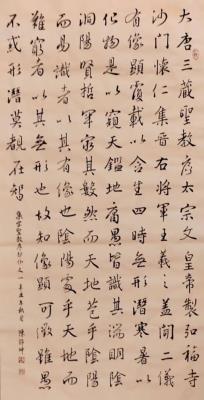 大唐三藏聖教序太宗文皇帝製弘福寺
沙門懷仁集晉右將軍王羲之蓋聞二儀
有像顯覆載以含生四時無形潛寒暑以
化物是以窺天鑑地庸愚皆識其端明陰
洞陽賢哲罕窮其數然而天地苞乎陰陽
而易識者以其有像也陰陽處乎天地而
難窮者以其無形也故知像顯可徵雖愚
不惑形潛莫覩在智
集字聖教序